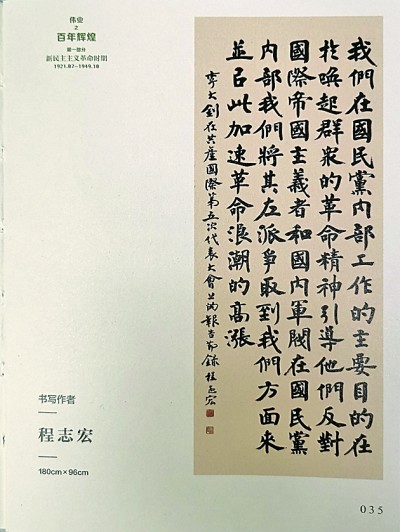 伟业
之
百年辉煌
第一部分
新民主主义革命时期
1921.07-1949.10
我們在國民黨內部工作的主要目的在
於喚起群衆的革命精神引導他們反對
國際帝國主義者和國內軍閥在國民黨
內部我們將其左派爭取到我們方面來
並以此加速革命浪潮的高漲
李大釗在共產國際第五次代表大會上的報告節錄程志宏
书写作者
程志宏
180cm×96cm
035